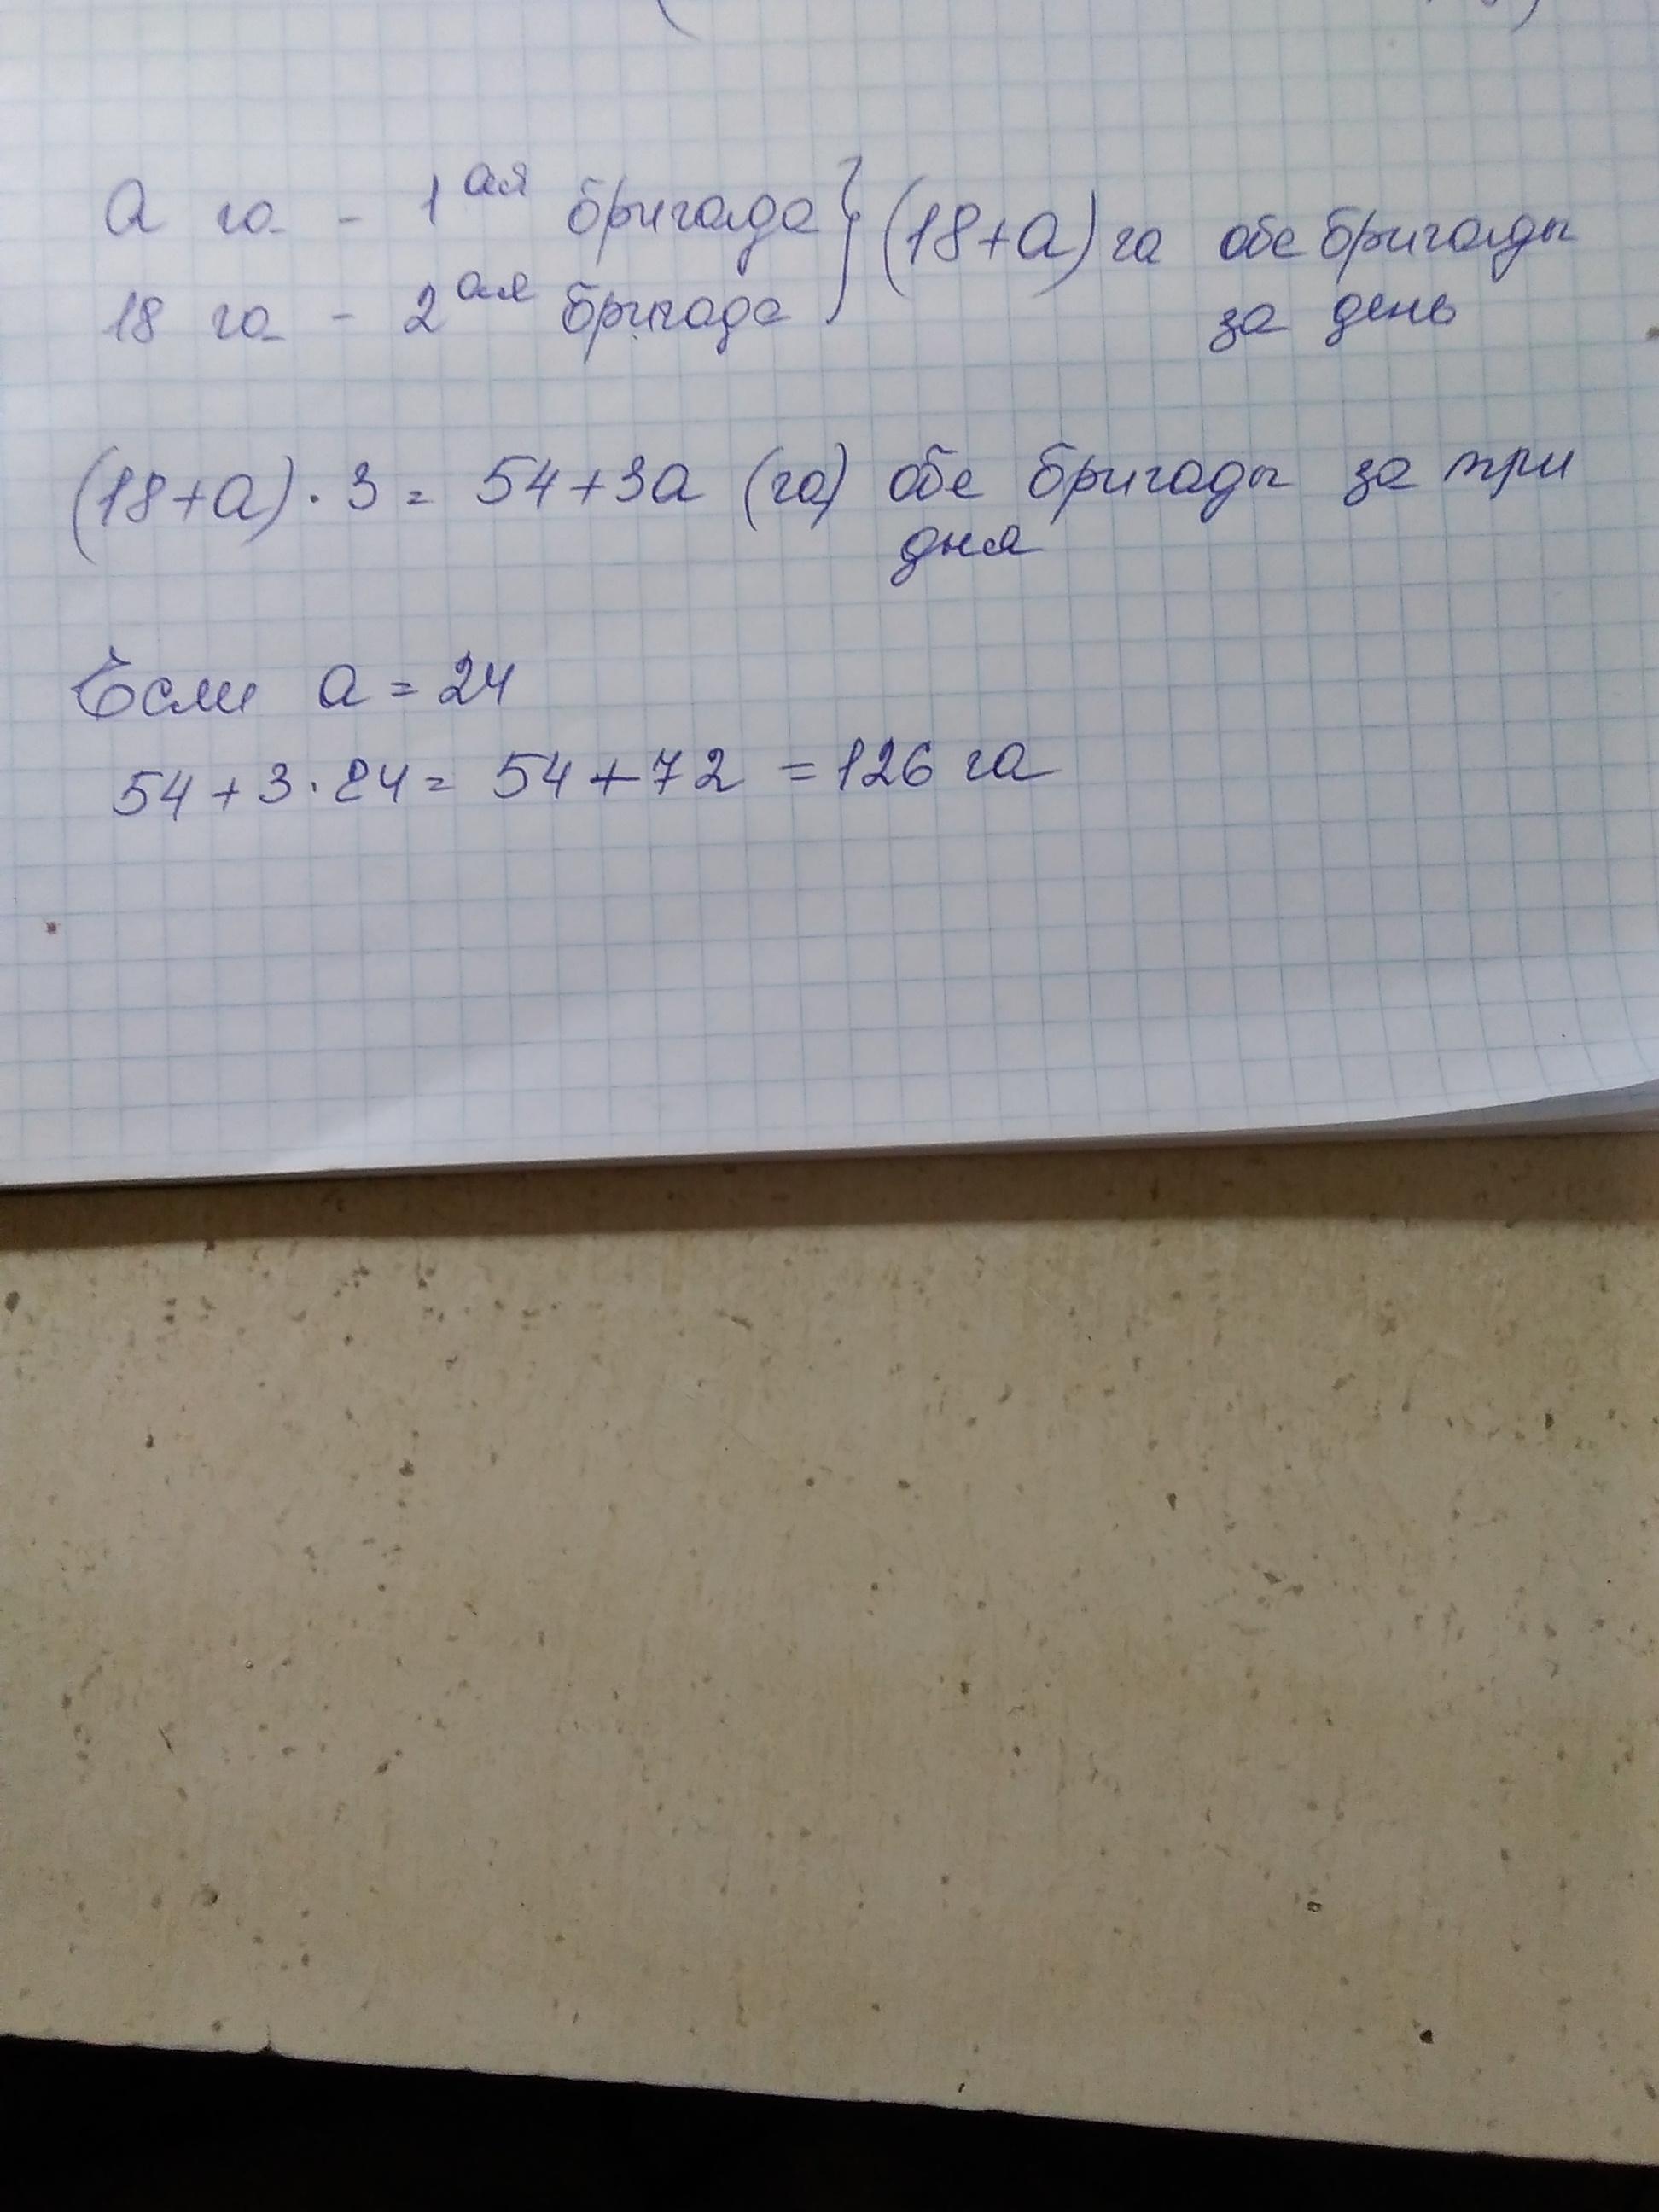 а га - 1ая бригада } (18+а) га обе бригады
18 га - 2ая бригада за день
(18+а)·3= 54+3а (га) обе бригады за три
дня
Если а = 24
54+3·24= 54+72 =126 га